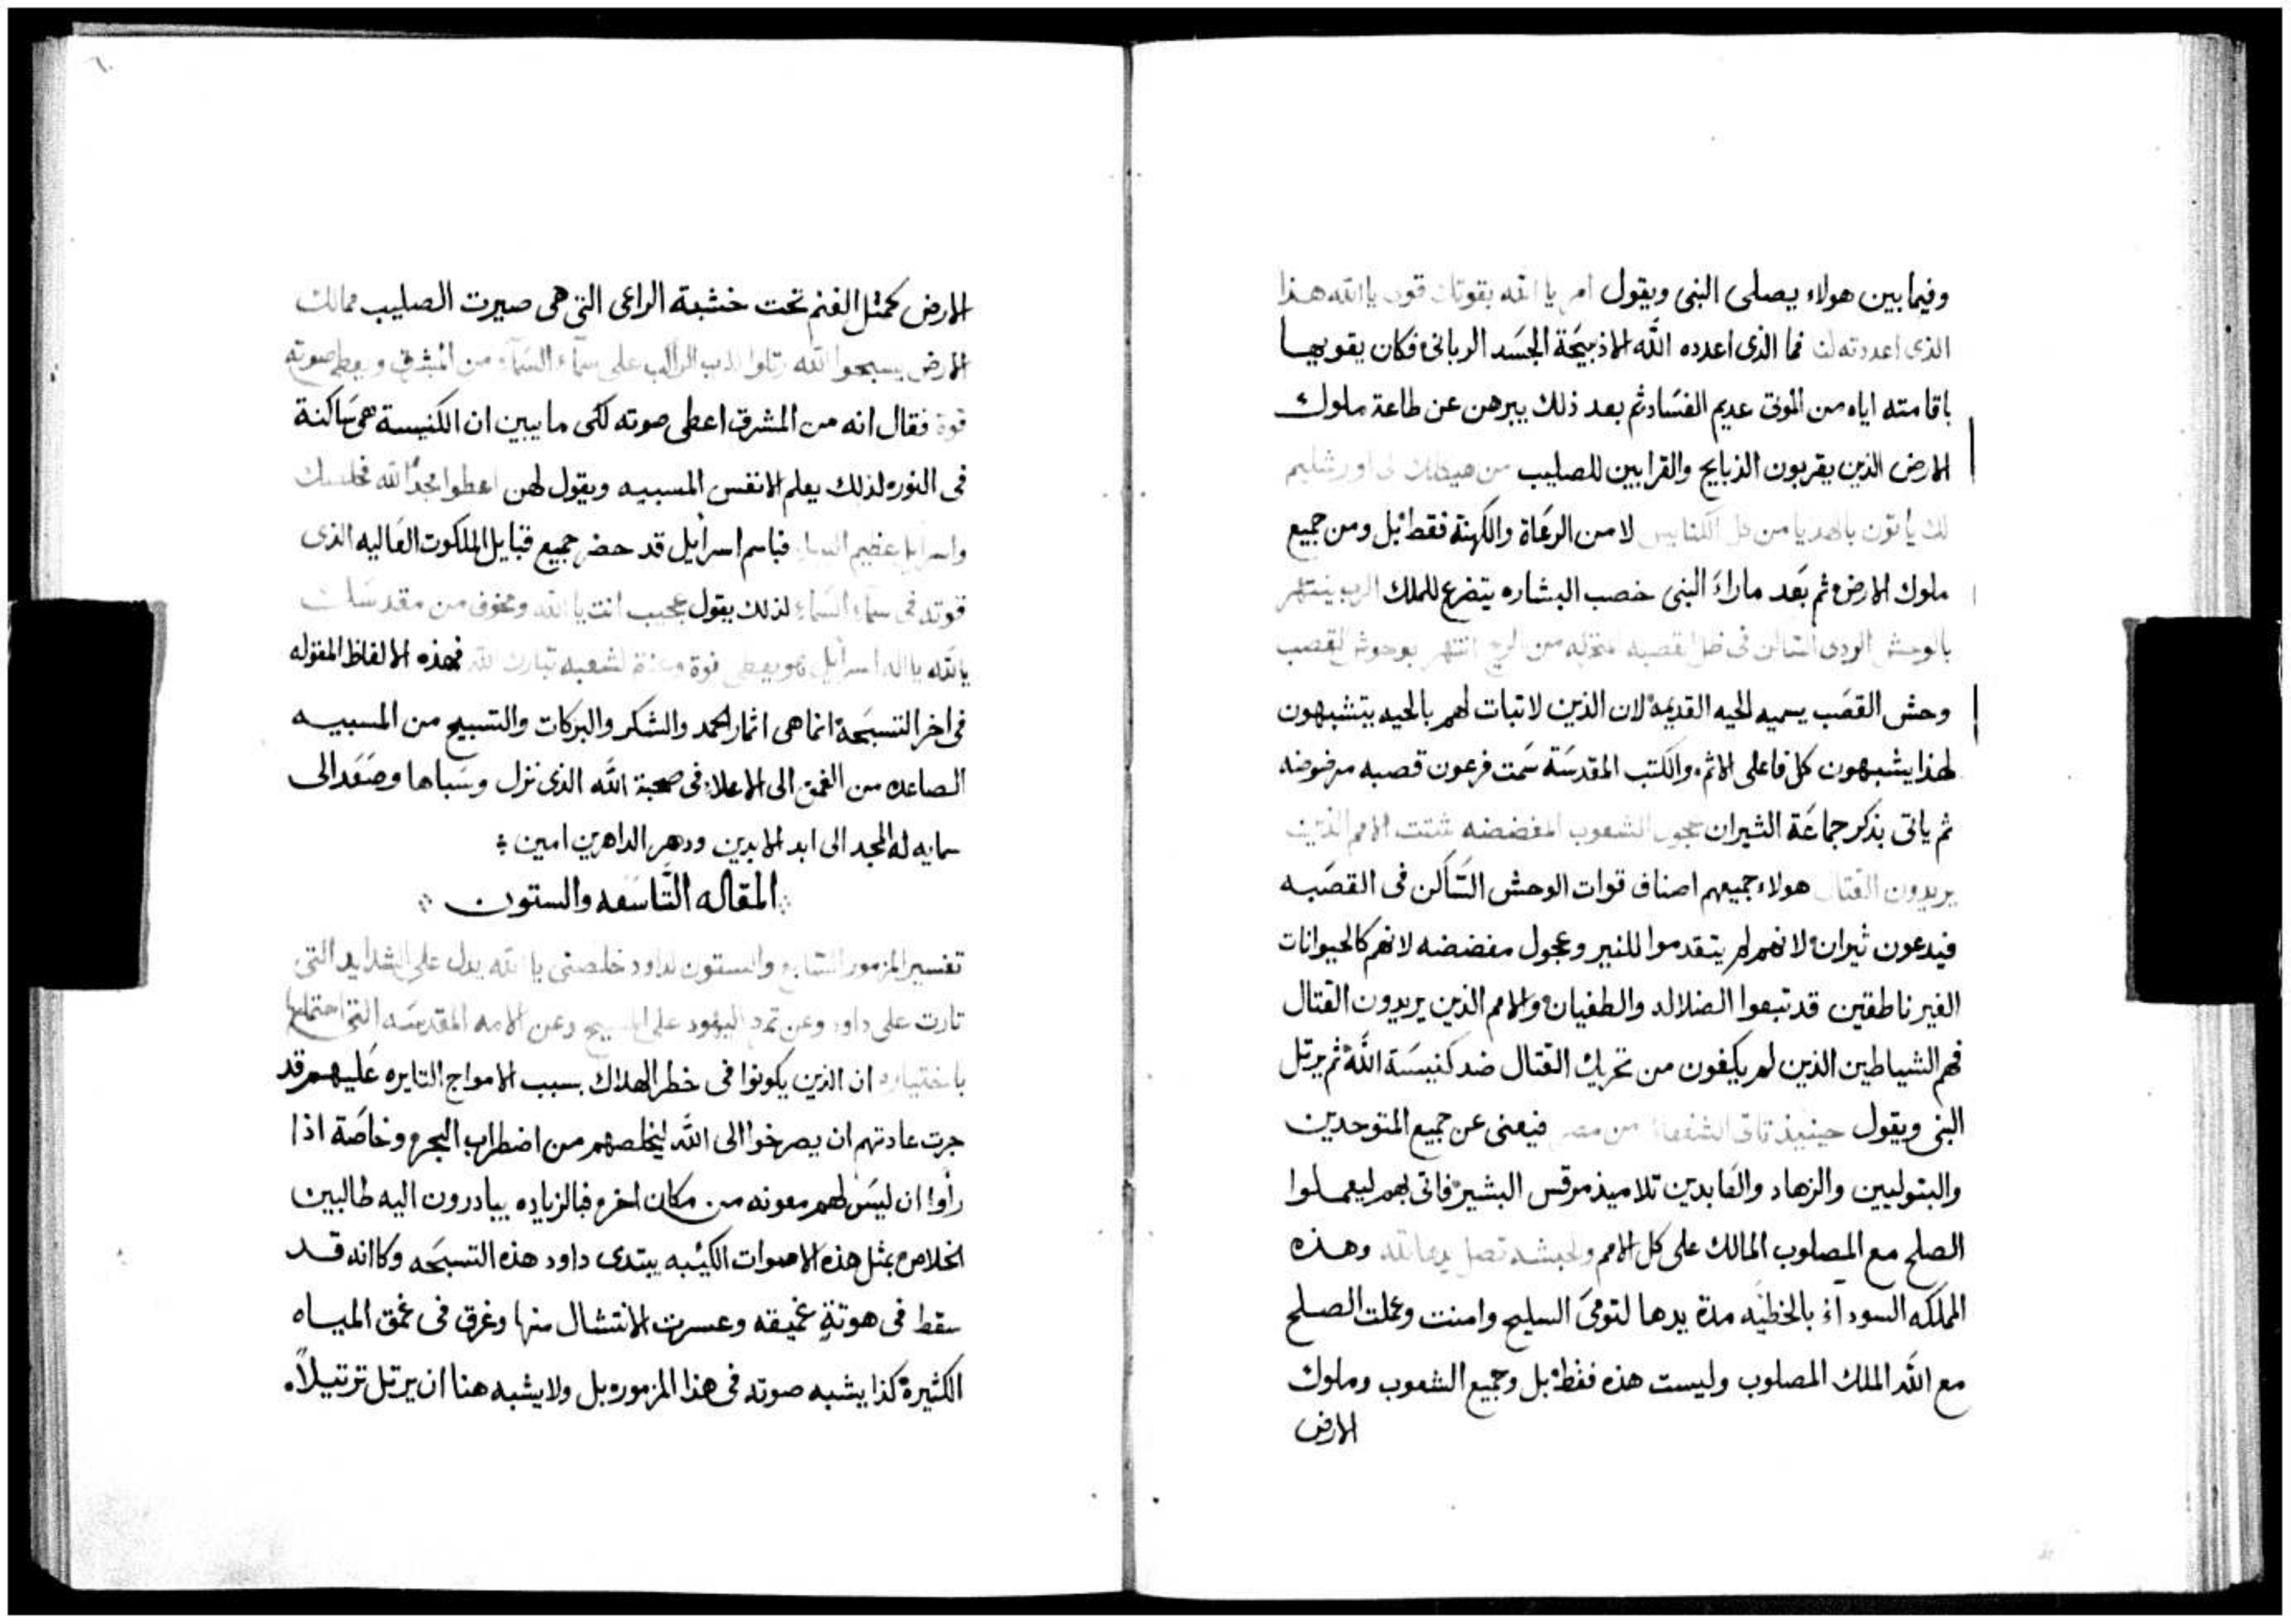 وفيما بين هولاء يصلى النبى ويقول امر يا الله بقوتك قون يا الله هذا
الذى اعددته لنا فما الذى اعدده الله الا ذبيحة الجسد الربانى فكان يقويها
باقامته اياه من الموتى عديم الفساد ثم بعد ذلك يبرهن عن طاعة ملوك
الارض الذين يقربون الذبايح والقرابين للصليب من هيكلك لى اورشليم
لك ياتون بالهدايا من كل الكنايس لا من الرعاة والكهنة فقط بل ومن جميع
ملوك الارض ثم بعد ماراء النبى خصب البشاره يتضرع للملك الرب ينتهر
بالوحش الردى الساكن فى ظل القصبه من الريح انتهر بوحوش القصب
وحش القصب يسميه الحيه القديمة لان الذين لا تبات لهم بالحيه يتشبهون
لهذا يشبهون كل فاعلى الاثم والكتب المقدسة سمت فرعون قصبه مرضوضه
ثم ياتى بذكر جماعة الثيران عجول الشعوب المفضضه شتت الامم الذين
يريدون القتال هولاء جميعهم اصناف قوات الوحش الساكن فى القصبه
فيدعون ثيران لانهم لم يتقدموا للنير وعجول مفضضه لانهم كالحيوانات
الغير ناطقين قد تبعوا الضلاله والطغيان والامم الذين يريدون القتال
فهم الشياطين الذين لم يكفون من تحريك القتال ضد كنيسة الله ثم يرتل
النبى ويقول حينيذ تاتى الشفعاء من مصر فيعنى عن جميع المتوحدين
والبتوليين والزهاد والعابدين تلاميذ مرقس البشير فاتى بهم ليعملوا
الصلح مع المصلوب المالك على كل الامم والحبشه تصل يدها لله وهذه
الملكه السوداء بالخطيه مدة يدها لتومى السليح وامنت وعملت الصلح
مع الله الملك المصلوب وليست هذه فقط بل وجميع الشعوب وملوك
الارض
الارض كمثل الغنم تحت خشبة الراعى التى هى صيرت الصليب ممالك
الارض يسبحوا الله رتلوا للرب الراكب على سماء السماء من المشرق ويعطى صوته
قوة فقال انه من المشرق اعطى صوته لكى ما يبين ان الكنيسة هى ساكنة
فى النور لذلك يعلم الانفس المسبيه ويقول لهن اعطوا مجدا لله
واسرايل عظيم البهاء فباسم اسرايل قد حضر جميع قبايل الملكوت العاليه الذى
قوته فى سماء السماء لذلك يقول عجيب انت يا الله ومخوف من مقدسك
يا الله يا اله اسرايل هو يعطى قوة وعزة لشعبه تبارك الله فهذه الالفاظ المقوله
فى اخر التسبحة انما هى اثمار الحمد والشكر والبركات والتسبيح من المسبيه
الصاعده من العمق الى الاعلاء فى صحبة الله الذى نزل وسباها وصعد الى
سمايه له المجد الى ابد الابدين ودهر الداهرين امين
المقاله التاسعه والستون
تفسير المزمور التاسع والستون لداود خلصنى يا الله يدل على الشدايد التى
ثارت على داود وعن تمرد اليهود على المسيح وعن الامه المقدسه التى احتملها
باختياره ان الذين يكونوا فى خطر الهلاك بسبب الامواج الثايره عليهم قد
جرت عادتهم ان يصرخوا الى الله ليخلصهم من اضطراب البحر وخاصة اذا
راوا ان ليس لهم معونه من مكان اخر فبالزياده يبادرون اليه طالبين
الخلاص بمثل هذه الاصوات الكيبه يبتدى داود هذه التسبحه وكاانه قد
سقط فى هوتة عميقه وعسرت الانتشال منها وغرق فى عمق المياه
الكثيرة كذا يشبه صوته فى هذا المزمور بل ولا يشبه هنا ان يرتل ترتيلاً